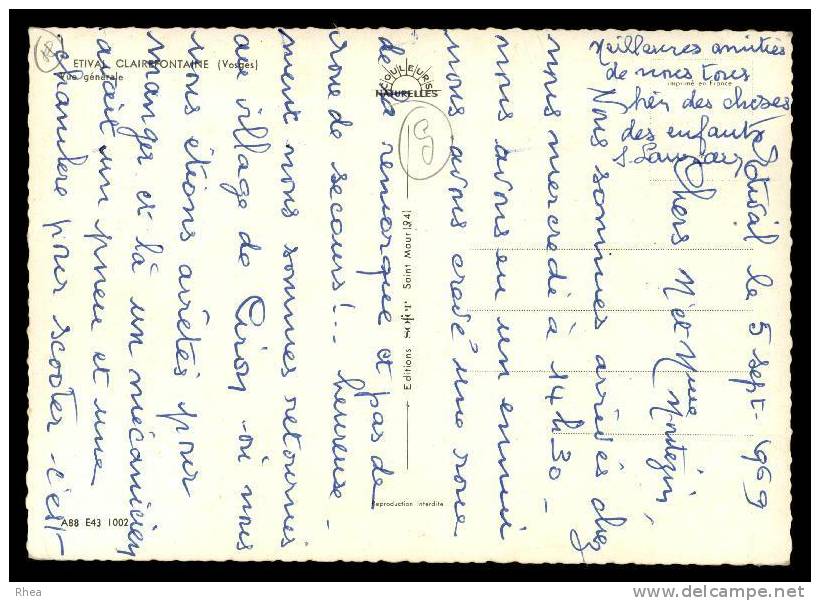 ETIVAL CLAIREFONTAINE (Vosges)
Vue générale
COULEURS
NATURELLES
imprimé en France
Editions SOFER Saint Maur (94)
Reproduction interdite
A88 E43 1002
Etival le 5 sept. 1969
Chers Mr et Mme
Nous sommes arrivés chez
nous mercredi à 14h30 -
nous avons eu un ennui
nous avons crevé une roue
de la remorque et pas de
roue de secours !.. heureuse-
ment nous sommes retournés
au village de Ciron où nous
nous étions arrêtés pour
manger et là un mécanicien
avait un pneu et une
chambre pour scooter c'est
Meilleures amitiés
de nous tous
bien des choses
des enfants
Rhea
www.delcampe.net